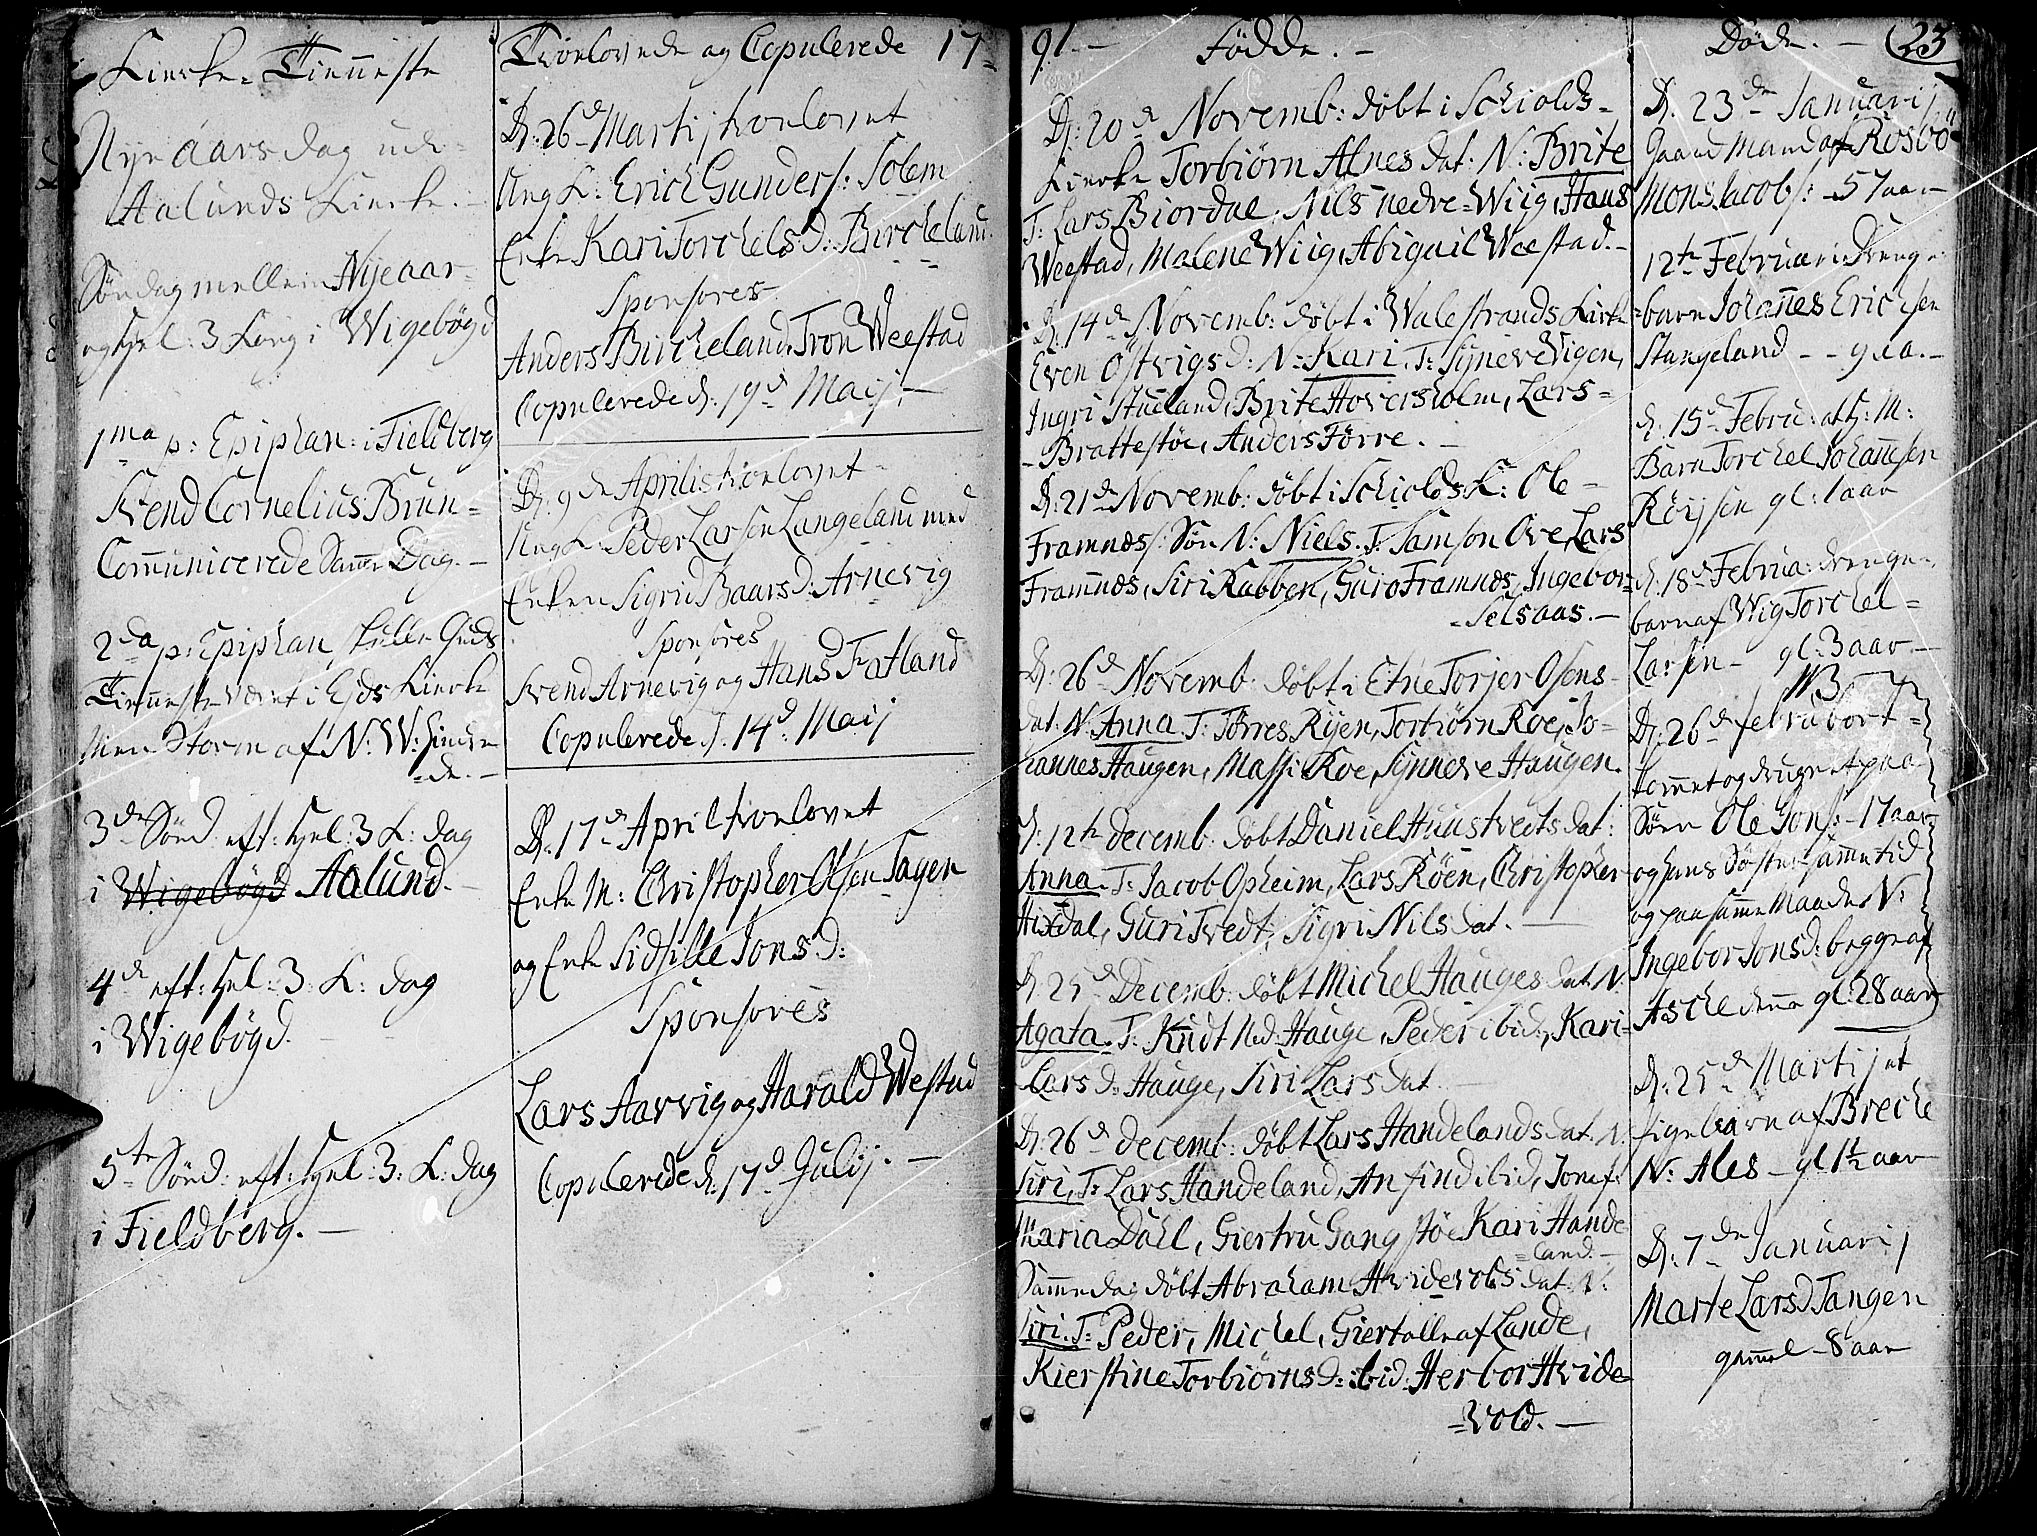 Kirke-Tienneste
Nye Aars Dag ude
Aalunds Kirke.
Söndag mellem Nyeaar
og Hel: 3 Kong i Wigebögd
1ma p: Epiphan: i Fieldberg
Svend Cornelius Brun
Communicerede Samme Dag.
2da p: Epiphan, skulle Guds
Tienneste været i Ejds Kirke
Men Storm af N: W: hindre
=de.
3de Sönd: eft: Hel: 3 K: dag
i Wigebögd Aalund.
4de eft: Hel: 3: K: dag
i Wigebögd.
5te Sönd: eft: Hel: 3: K: dag
i Fieldberg.
Trolovede og Copulerede 17=
D: 26de Martij trolovet
Ung K: Erich Gunders: Solem
Enke Kari Torchelsd: Bircheland.
Sponsores
Anders Bircheland, Tron Weestad
Copulerede d: 19d Maij.
D: 9de Aprilis trolovet
Ung K: Peder Larsen Langeland med
Enken Sigrid Baarsd: Arnevig
Sponsores
Svend Arnevig og Hans Fatland
Copulerede d: 14d Maij
D: 17de April trolovet
Enke M: Christopher Olsen Tagen
og Enke Sidsille Jonsd:
Sponsores
Lars Aarvig og Harald Westad
Copulerede d: 17d Julij.
91. Födde.
D: 20d Novemb: döbt i Schiolds-
Kirke Torbiörn Alnes dat: N: Brite
T: Lars Biordal, Nils nedre Wiig, Hans
Weestad, Malene Wiig, Abigail Weestad.
D: 14d Novemb: döbt i Walestrands Kirke
Even Östvigs d: N: Kari, T: Synneve Vigen,
Ingri Stueland, Brite Hoversholm, Lars
Brattestöe, Anders Förre.
D: 21d Novemb: döbt i Schiolds K: Ole
Framnes: Sön N: Niels. T: Samson Ove, Lars
Framnæs, Siri Rabben, Guro Framnæs, Ingebor
Selsaas.
D: 26d Novemb: döbt i Etne Torjer Osens
dat: N: Anna T: Törres Ryen, Torbiörn Roe, Jo-
hannes Haugen, Massi Roe, Synneve Haugen.
D: 12te Decemb: döbt Daniel Huustvedts dat:
Anna. T: Jacob Opheim, Lars Röen, Christopher
Hixdal, Guri Tvedt, Sigri Nils dat.
D: 25d Decemb: döbt Michel Hauges dat: N:
Agata. T: Knudt Ned: Hauge, Peder ibid:, Kari
Lars d: Hauge, Siri Lars dat.
D: 26d Decemb: döbt Lars Handelands dat: N:
Siri, T: Lars Handeland, Anfind ibid, Jomf:
Maria Dahl, Giertru Gangstöe Kari Hande
=land.
Samme dag döbt Abraham Hvidevolds dat: N:
Siri. T: Peder, Michel, Giertolle af Lande,
Kierstine Torbiörnsd: ibid: Herbor Hvide
=vold.
Döde. 23
D: 23de Januarij
Gaard Mand af Rosbö
Mons Jacobs: 57 aar
12te Februarii Drenge
barn Johannes Erichsen
Stangeland - - 9 aa.
d: 15d Febru: at H: M:
Barn Torchel Johannesen
Röijsen gl: 1 aar
d: 18d Februa: drenge
barn af Wig Torchel
Larsen gl: 3 aar
NB
D: 26d Febru bort=
kommet og druknet paa
Söen Ole Jons: 17 aar
og hans Söster samme tid
og paa samme Maade N:
Ingebor Jonsd: begge af
Asche denne gl: 28 aar
D: 25d Martij et
Pigebarn af Breche
N: Ales gl 1½ aar
D: 7de Januarij
Marte Larsd Tangen
gammel 8 aar